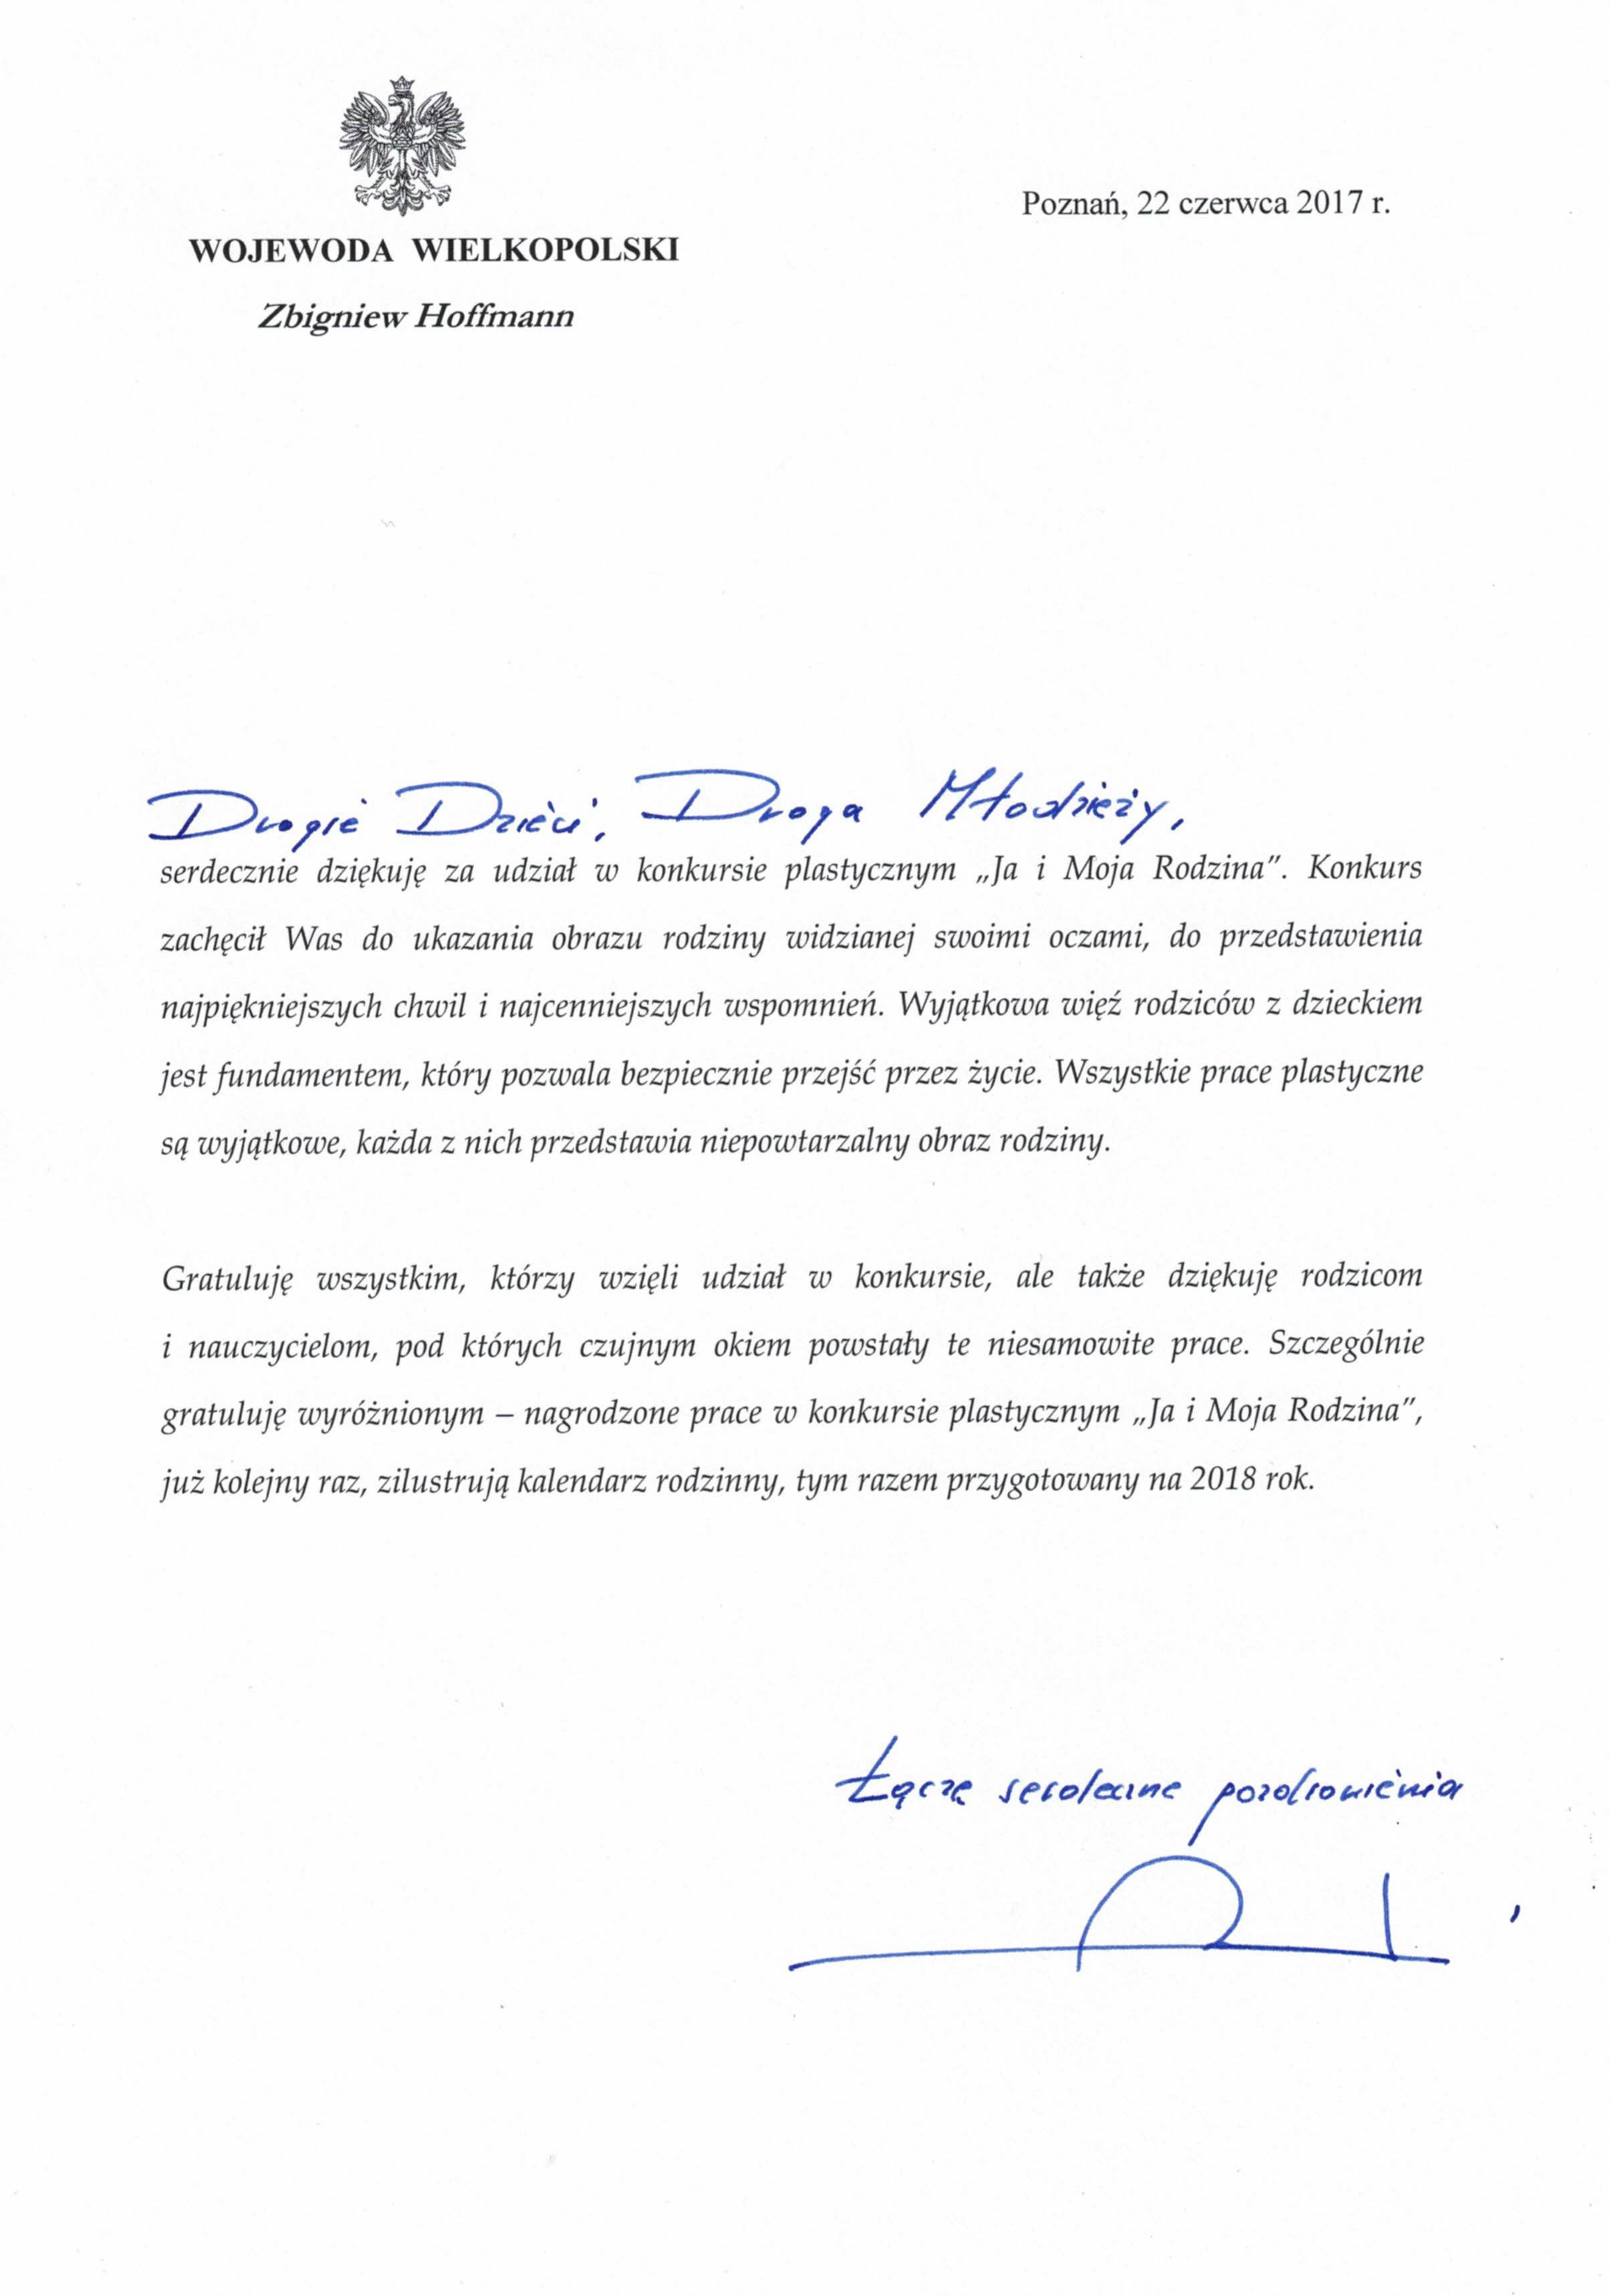 Poznań, 22 czerwca 2017 r.
WOJEWODA WIELKOPOLSKI
Zbigniew Hoffmann
Drogie Dzieci, Droga Młodzieży,
serdecznie dziękuję za udział w konkursie plastycznym „Ja i Moja Rodzina”. Konkurs
zachęcił Was do ukazania obrazu rodziny widzianej swoimi oczami, do przedstawienia
najpiękniejszych chwil i najcenniejszych wspomnień. Wyjątkowa więź rodziców z dzieckiem
jest fundamentem, który pozwala bezpiecznie przejść przez życie. Wszystkie prace plastyczne
są wyjątkowe, każda z nich przedstawia niepowtarzalny obraz rodziny.
Gratuluję wszystkim, którzy wzięli udział w konkursie, ale także dziękuję rodzicom
i nauczycielom, pod których czujnym okiem powstały te niesamowite prace. Szczególnie
gratuluję wyróżnionym – nagrodzone prace w konkursie plastycznym „Ja i Moja Rodzina”,
już kolejny raz, zilustrują kalendarz rodzinny, tym razem przygotowany na 2018 rok.
Łączę serdeczne pozdrowienia